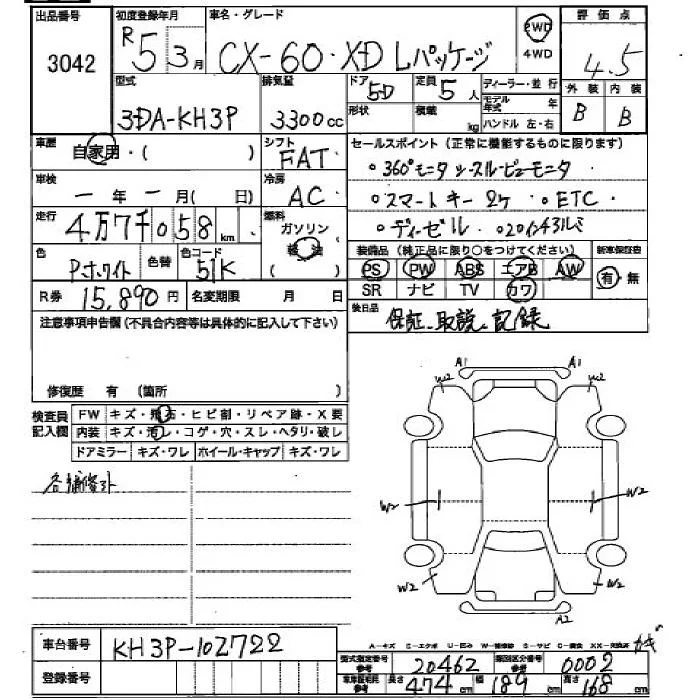 出品番号 初度登録年月 車名・グレード 2WD 評価点
3042 R5 3月 CX-60・XD Lパッケージ 4WD 4.5
型式 排気量 ドア 定員 ディーラー・並行 外装 内装
3DA-KH3P 3300cc 5D 5人 モデル年式 年 B B
形状 積載 kg ハンドル 左・右
車歴 自家用・( ) シフト FAT セールスポイント(正常に機能するものに限ります)
車検 ー年ー月( 日) 冷房 AC 。360°モニタ シースルービューモニタ
。スマートキー2ケ 。ETC
走行 4万7千058km 燃料 ガソリン 軽油 。ディーゼル 。20インチアルミ
色 Pホワイト 色替 色コード 51K 装備品(純正品に限り○をつけてください) 新車保証書
PS PW ABS エアB AW 有・無
R券 15,890円 名変期限 月 日 SR ナビ TV カワ
注意事項申告欄(不具合内容等は具体的に記入して下さい) 後日品 保証、取説、記録
修復歴 有 (箇所 )
検査員記入欄 FW キズ・飛石・ヒビ割・リペア跡・X要
内装 キズ・汚レ・コゲ・穴・スレ・ヘタリ・破レ
ドアミラー キズ・ワレ ホイール・キャップ キズ・ワレ
A1 A1
W2 W2
W2 W2
W2 W2
A2
車台番号 KH3P-102722
A-キズ E-エクボ U-凹み W-補修跡 S-サビ C-腐食 XX-交換済
登録番号 型式指定番号 参考 20462 類別区分番号 参考 0002
車車証記載 参考 長さ 474cm 幅 189cm 高さ 168cm